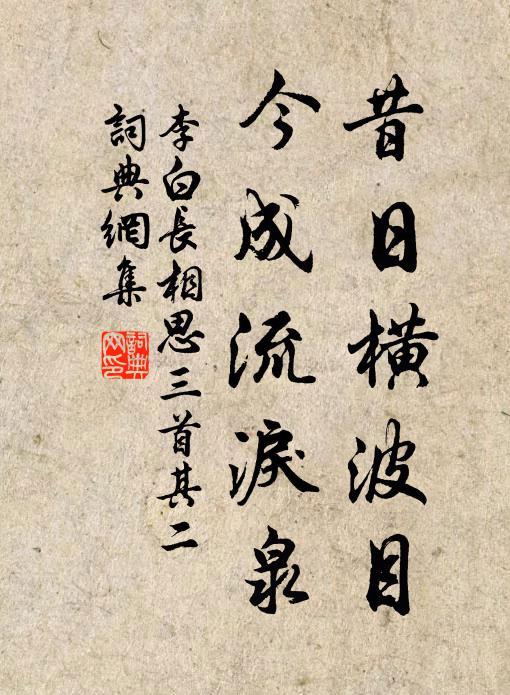 昔日橫波目
今成流淚泉
李白長相思三首其二
詞典網集
詞典
网印